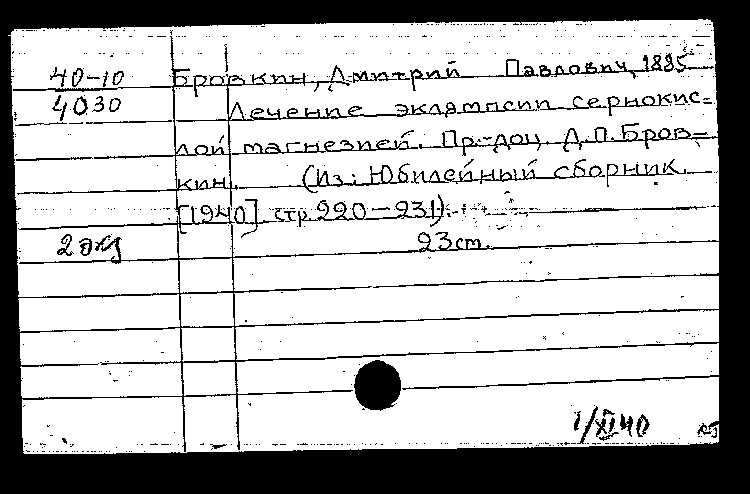 40-10 Бровкин, Дмитрий Павлович, 1885
4030 Лечение эклямпсии сернокис=
лой магнезией. Пр.-доц. Д.П. Бров-
кин. (Из: Юбилейный сборник.
[1940] стр. 220-231).
2 экз 23 cm.
1/XI 40